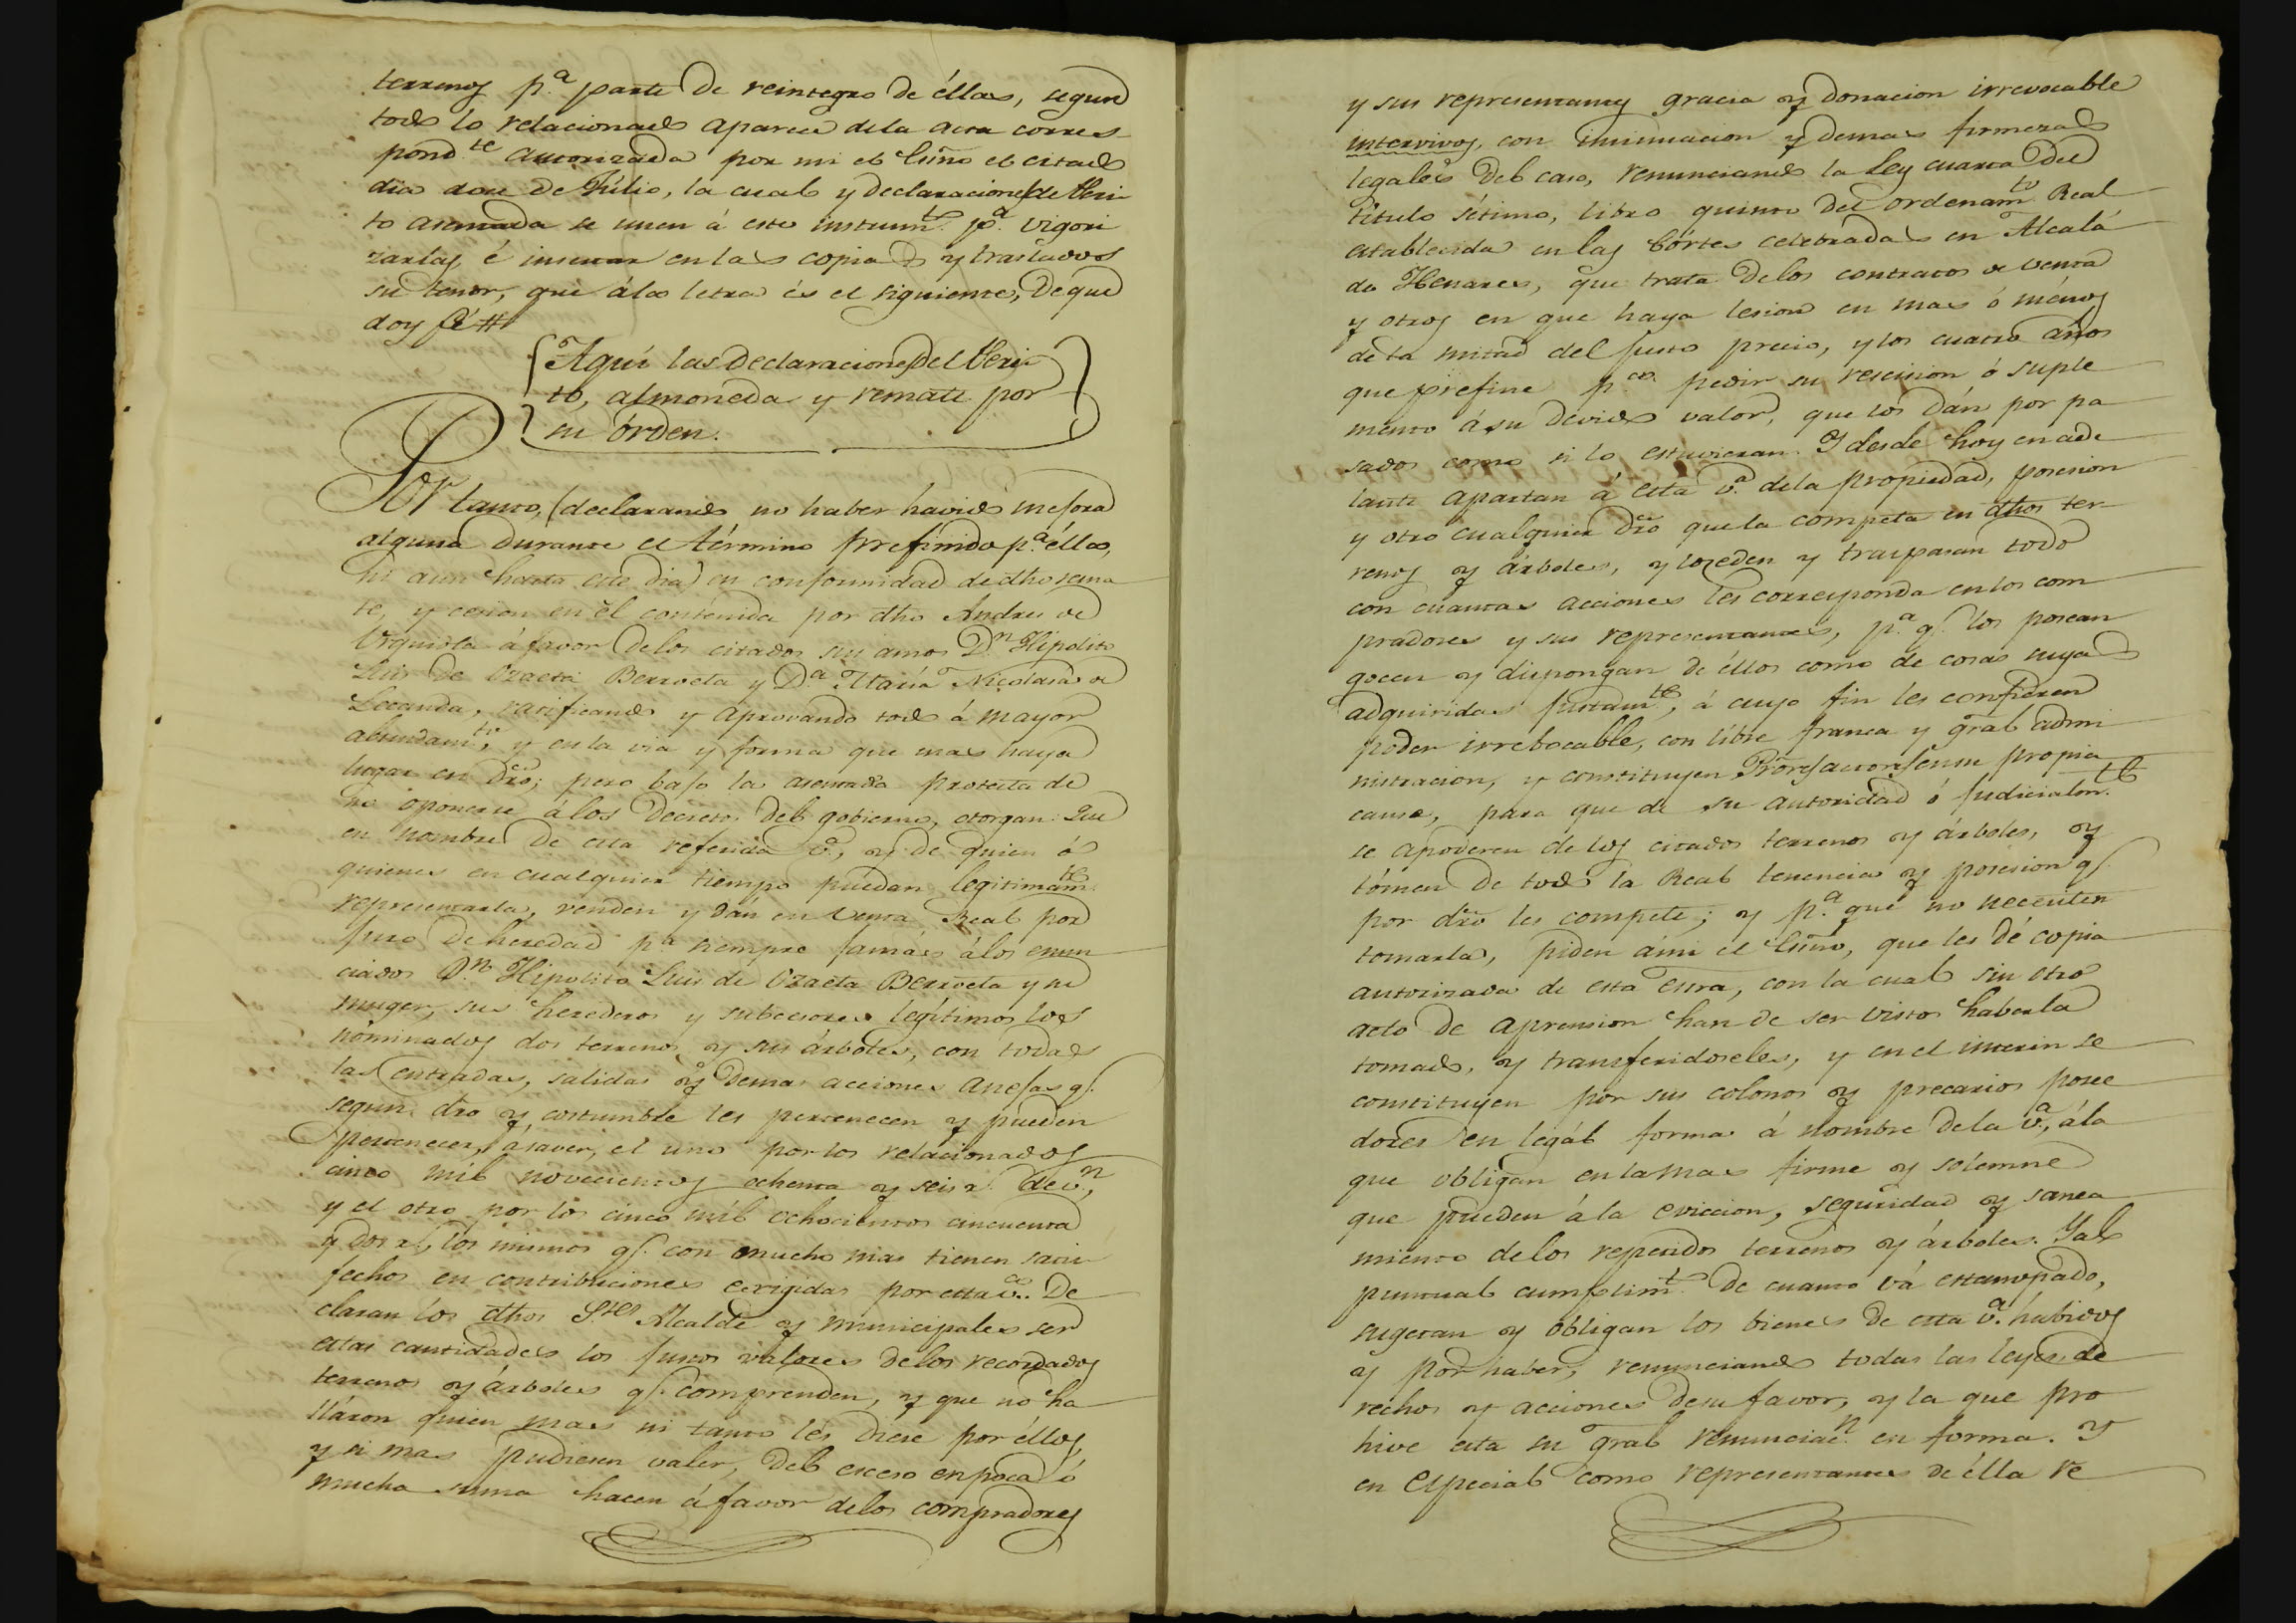 terrenos p.ª parte de reintegro de éllas, segun
todo lo relacionado aparece dela acta corres-
pond.te autorizada por mi el Essno el citado
dia doce de Júlio, la cual y declaraciones de Peri-
to asentada se unen á este instrum.to p.ª vigori-
zarlas, é insertar en las copias y traslados
su tenor, que ála letra és el siguiente, de que
doy fé #
Aquí las declaraciones del Peri-
to, almoneda y remate por
su órden.
Por tanto, (declarando no haber havido mejora
alguna durante el término prefinido p.ª élla,
ni aun hasta este dia) en conformidad de dho rema-
te, y cesion en él contenida por dho Andres de
Urquiola á favor delos citados sus amos D.n Hipolito
Luis de Ozaeta Berroeta y D.ª María Nicolasa de
Lecanda, ratificando y aprovando todo á mayor
abundam.to, y en la via y forma que mas haya
lugar en dro; pero bajo la asentada protesta de
no oponerse álos Decretos del gobierno, otorgan: Que
en nombre de esta referida v.ª, y de quien ó
quienes en cualquier tiempo puedan legitimam.te
representarla, venden y dán en venta Real por
juro de heredad p.ª siempre jamás álos enun-
ciados D.n Hipolito Luis de Ozaeta Berroeta y su
muger, sus herederos y subcesores legítimos los
nóminados dos terrenos y sus árboles, con todas
las entradas, salidas y demas acciones anejas q.
segun dro y costumbre les pertenecen y pueden
pertenecer, ásaver, el uno por los relacionados
cinco mil novecientos ochenta y seis r. de v.n,
y el otro por los cinco mil ochocientos cincuenta
y dos r.l, los mismos q. con mucho mas tienen satis-
fechos en contribuciones exigidas por esta v.ª. De-
claran los dhos S.res Alcalde y municipales ser
estas cantidades los justos valores delos recordados
terrenos y árboles q. comprenden, y que no ha-
lláron quien mas ni tanto les diese por éllos,
y si mas pudiesen valer, del exceso en poca ó
mucha suma hacen á favor delos compradores
y sus representantes gracia y donacion irrevocable
intervivos, con insinuacion y demas firmezas
legales del caso, renunciando la Ley cuarta del
título sétimo, libro quinto del ordenam.to Real
establecida en las Córtes celebradas en Alcalá
de Henares, que trata delos contratos de venta
y otros en que haya lesion en mas ó ménos
dela mitad del justo precio, y los cuatro años
que prefine p.ª pedir su rescision ó suple-
mento á su devido valor, que los dán por pa-
sados como si lo estuvieran. Y desde hoy en ade-
lante apartan á esta v.ª dela propiedad, posesion
y otro cualquier dro que la competa en dhos ter-
renos y árboles, y lo ceden y traspasan todo
con cuantas acciones les corresponda en los com-
pradores y sus representantes, p.ª q. los posean
gocen y dispongan de éllos como de cosas suyas
adquiridas justam.te, á cuyo fin les confieren
poder irrebocable, con líbre franca y gral admi-
nistracion, y constituyen Prores actores en su propia
causa, para que de su autoridad ó judicialm.te
se apoderen de los citados terrenos y árboles, y
tómen de todo la Real tenencia y posesion q.
por dro les compete; y p.ª que no necesiten
tomarla, piden ámi el Essno, que les dé copia
autorizada de esta essra, con la cual sin otro
acto de aprension han de ser vistos haberla
tomado, y transferidoseles, y en el interin se
constituyen por sus colonos y precarios posee-
dores en legál forma á nombre dela v.ª, ála
que obligan en la mas firme y solemne
que pueden á la eviccion, seguridad y sanea-
miento delos referidos terrenos y árboles. Y al
puntual cumplim.to de cuanto vá estampado,
sugetan y obligan los bienes de esta v.ª habidos
y por haber, renunciando todas las leyes, de-
rechos y acciones de su favor, y la que pro-
hive esta su gral renunciac.n en forma. Y
en especial como representantes de élla re-